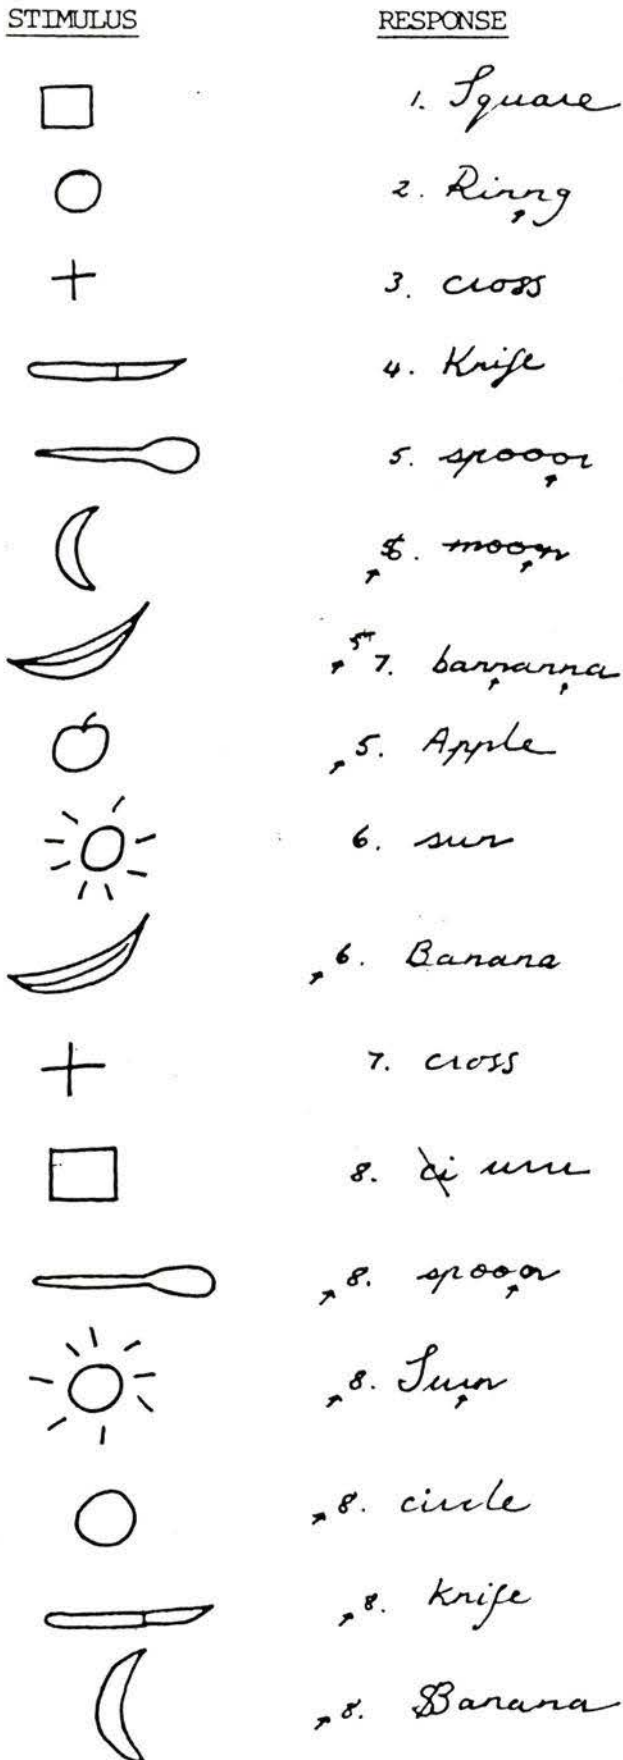 STIMULUS RESPONSE
1. Square
2. Rinng
3. cross
4. Knife
5. spooon
6. mooon
7. bannanna
5. Apple
6. sun
6. Banana
7. cross
8. ci
8. spooon
8. Suun
8. circle
8. Knife
8. Banana